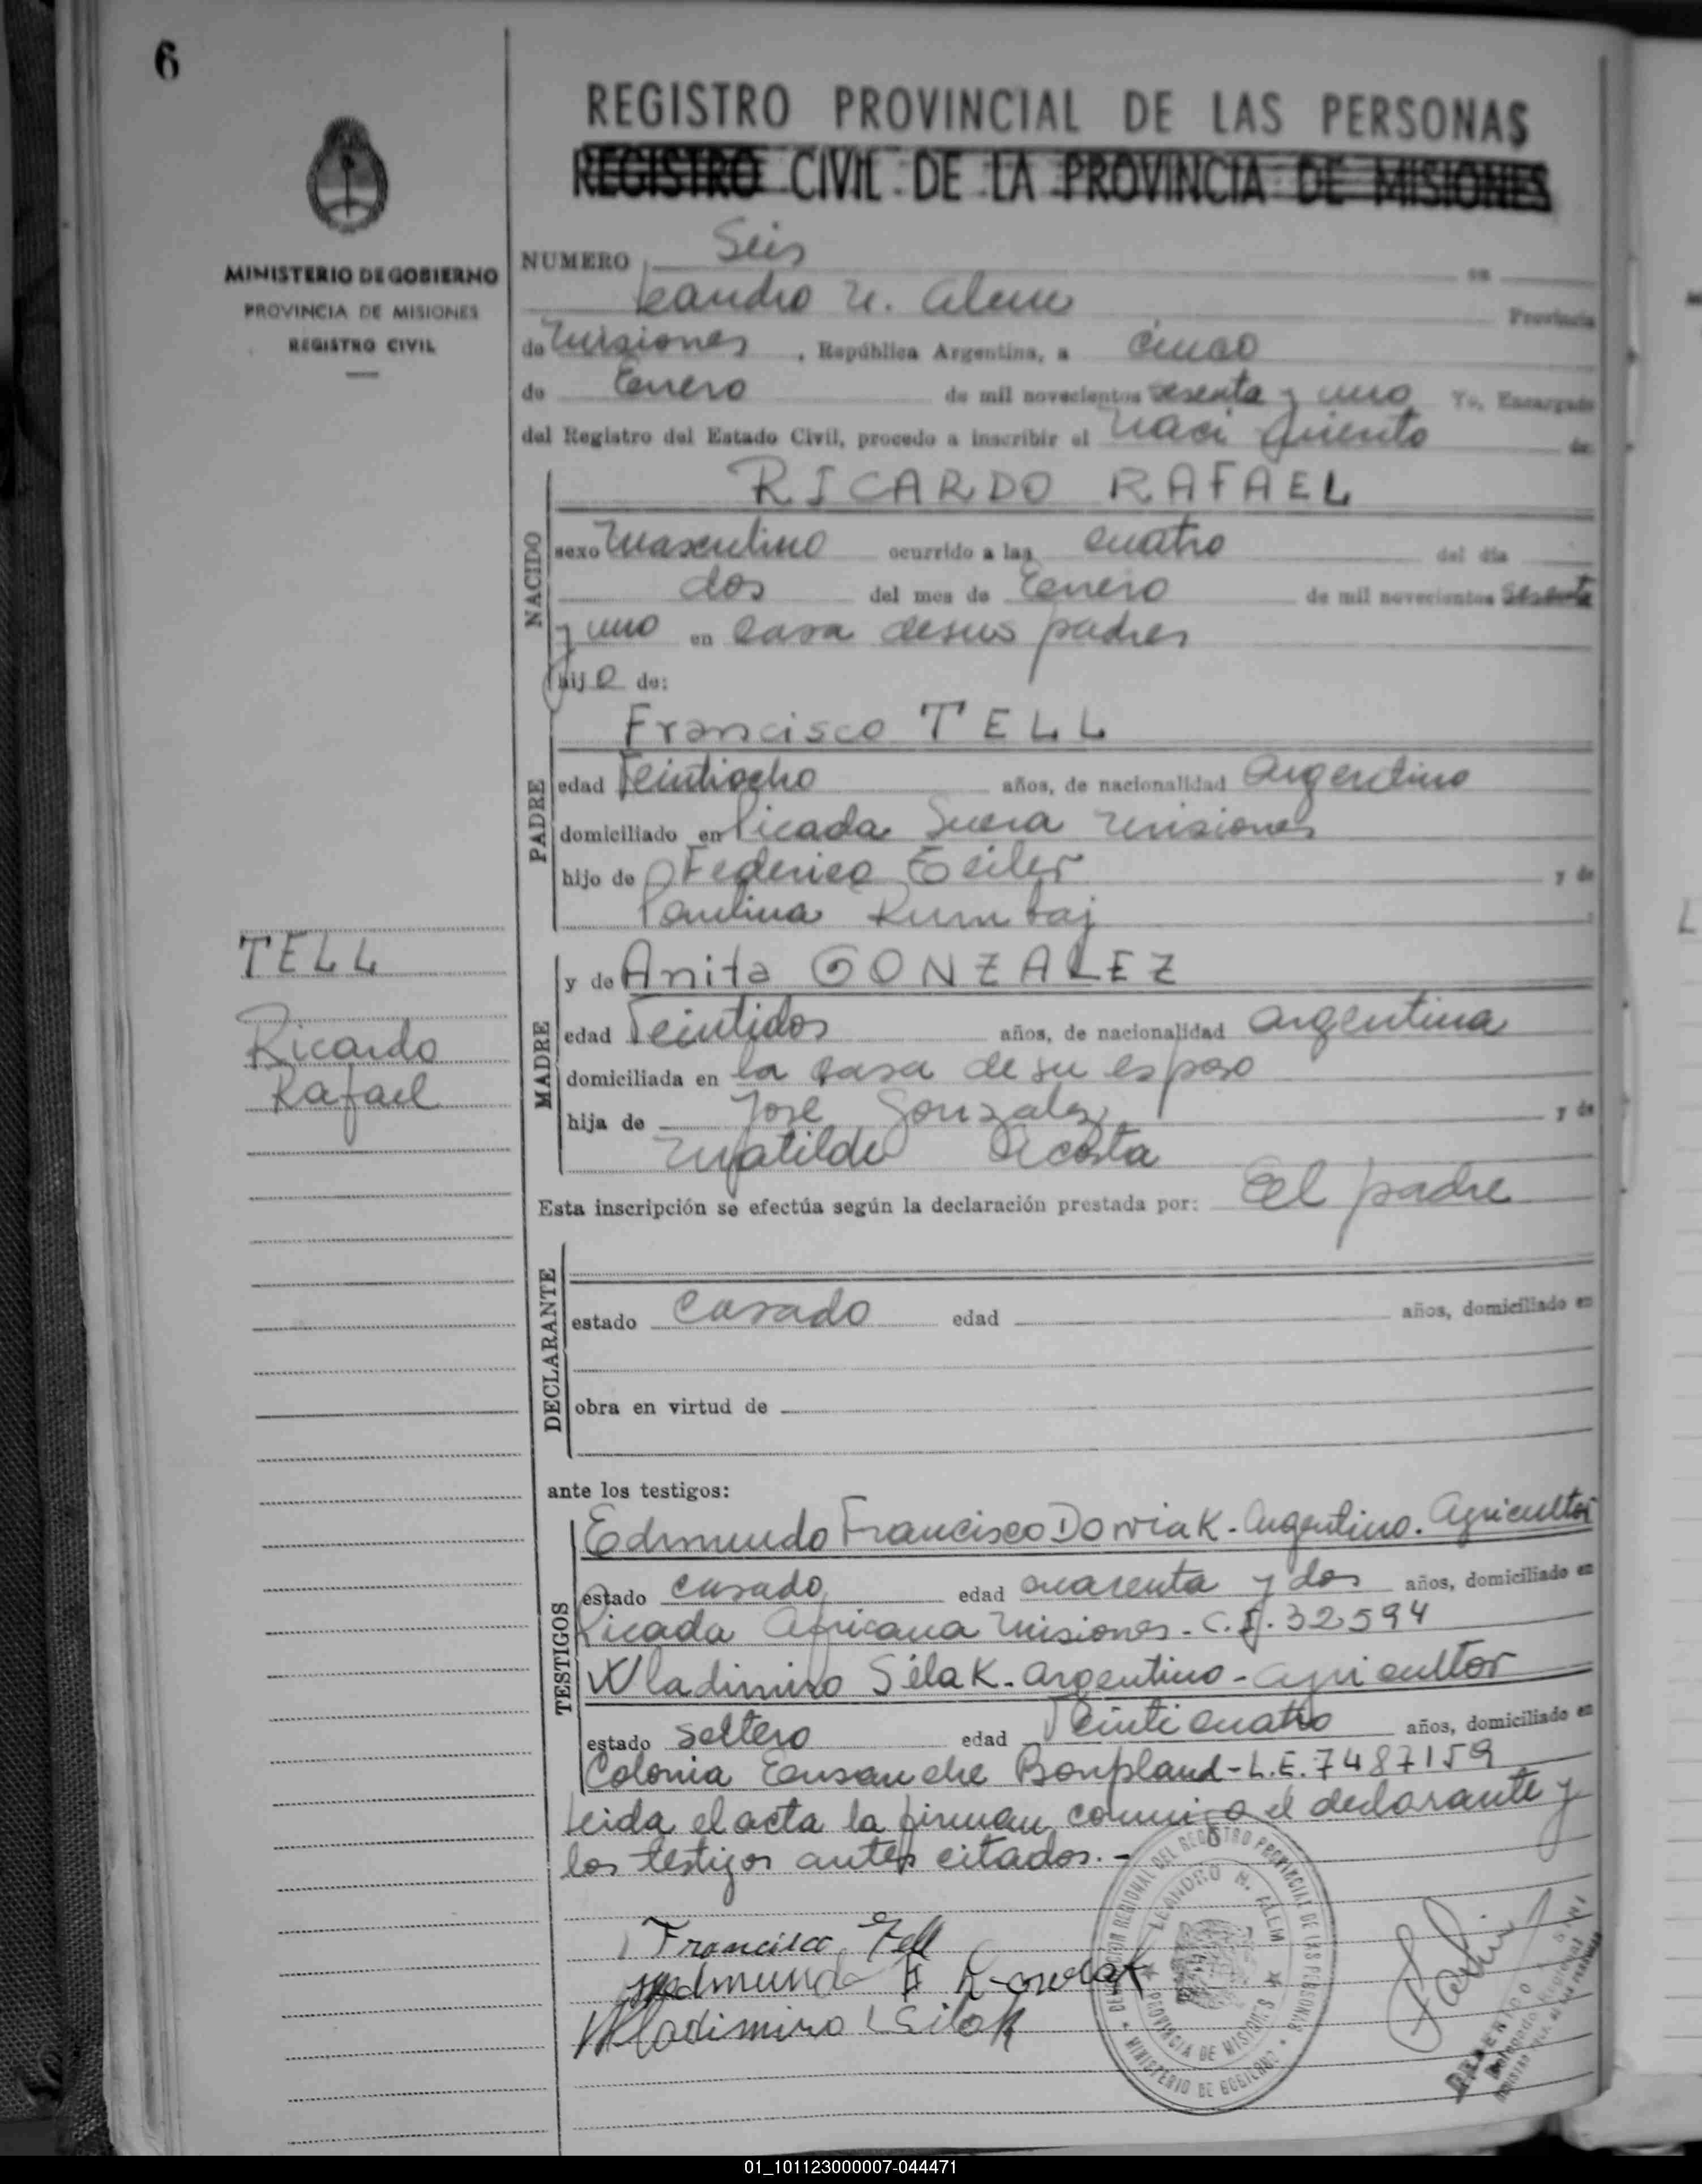 6
REGISTRO PROVINCIAL DE LAS PERSONAS
REGISTRO CIVIL DE LA PROVINCIA DE MISIONES
MINISTERIO DE GOBIERNO
PROVINCIA DE MISIONES
REGISTRO CIVIL
NUMERO Seis en
Leandro N. Alem Provincia
de Misiones, República Argentina, a cinco
de Enero de mil novecientos sesenta y uno Yo, Encargado
del Registro del Estado Civil, procedo a inscribir el Naci miento de:
NACIDO
RICARDO RAFAEL
sexo Masculino ocurrido a las cuatro del día
dos del mes de Enero de mil novecientos sesenta
y uno en casa de sus padres
hijo de:
PADRE
Francisco TELL
edad Veintiocho años, de nacionalidad Argentino
domiciliado en Picada Misiones
hijo de Federico y de
Paulina
TELL
Ricardo
Rafael
MADRE
y de Anita GONZALEZ
edad Veintidos años, de nacionalidad argentina
domiciliada en la casa de su esposo
hija de José Gonzalez y de
Matilde Acosta
Esta inscripción se efectúa según la declaración prestada por: El padre
DECLARANTE
estado casado edad años, domiciliado en
obra en virtud de
ante los testigos:
TESTIGOS
Edmundo Francisco - Argentino. Agricultor
estado casado edad cuarenta y dos años, domiciliado en
Picada Africana Misiones - C.I. 32594
Wladimiro Silak - argentino - agricultor
estado soltero edad Veinticuatro años, domiciliado en
Colonia Ensanche Bonpland - L.E. 7487159
Leida el acta la firman conmigo el declarante y
los testigos antes citados. -
Francisco Tell
Edmundo F
Wladimiro Silak
DEL REGISTRO PROVINCIAL DE LAS PERSONAS
LEANDRO N. ALEM
PROVINCIA DE MISIONES
MINISTERIO DE GOBIERNO
01_101123000007-044471